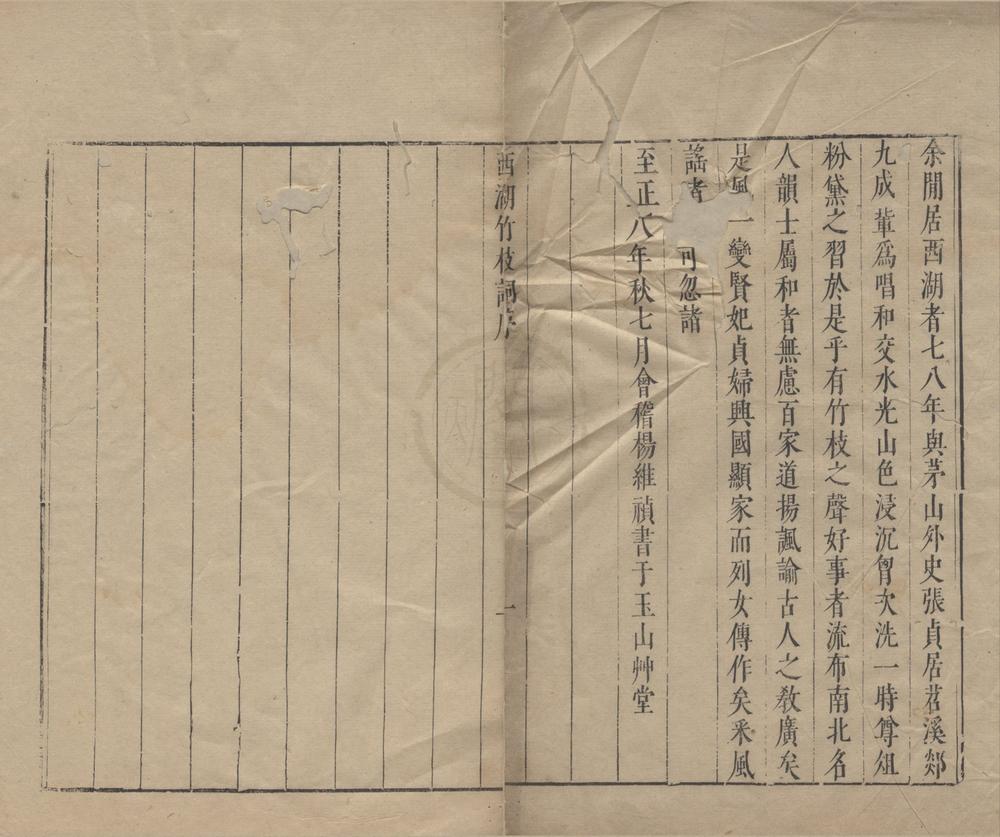 余閒居西湖者七八年與茅山外史張貞居苕溪郯
九成軰爲唱和交水光山色浸沉胷次洗一時罇俎
粉黛之習於是乎有竹枝之聲好事者流布南北名
人韻士屬和者無慮百家道揚諷諭古人之敎廣矣
是風一變賢妃貞婦興國顯家而列女傳作矣釆風
謠者可忽諸
至正八年秋七月會稽楊維禎書于玉山艸堂
西湖竹枝詞序
一